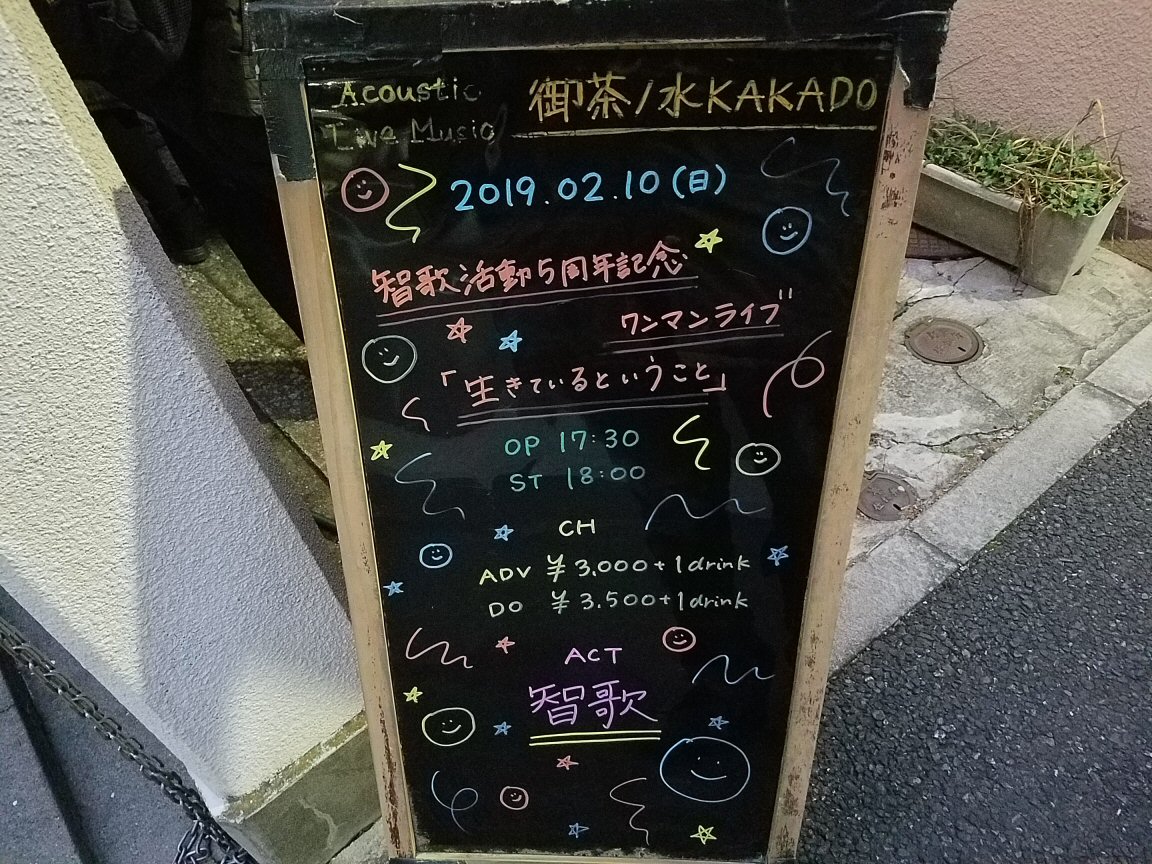 Acoustic
Live Music
御茶ノ水KAKADO
2019.02.10(日)
智歌活動5周年記念
ワンマンライブ
「生きているということ」
OP 17:30
ST 18:00
CH
ADV ¥3,000+1drink
DO ¥3,500+1drink
ACT
智歌